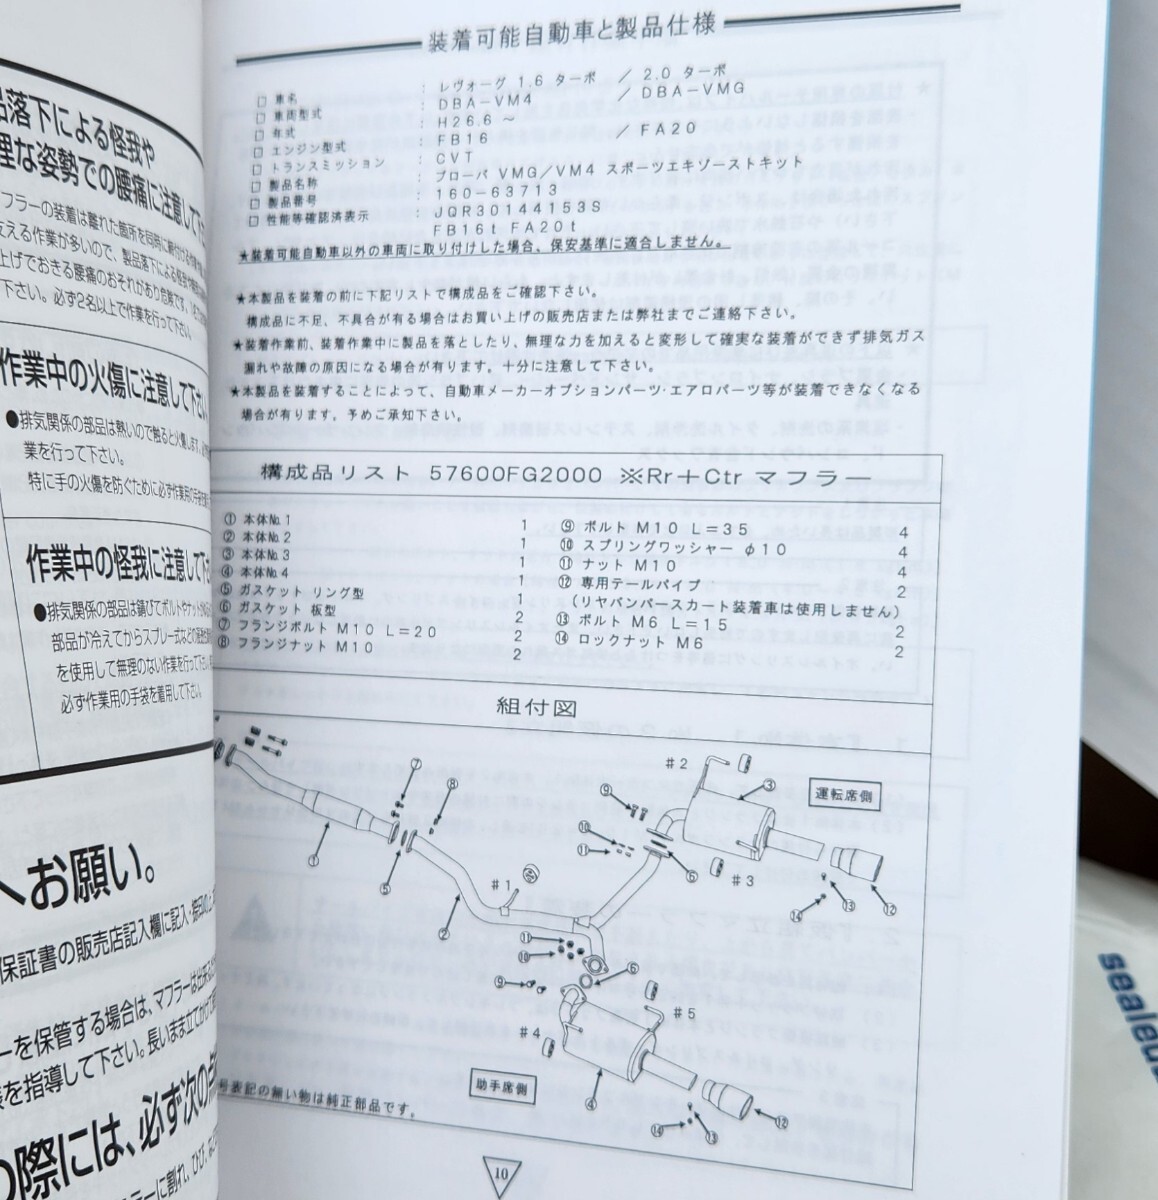 品落下による怪我や
理な姿勢での腰痛に注意して下
フラーの装着は離れた箇所を同時に
支える作業が多いので、製品落下による怪我や
上げでおきる腰痛のおそれがあり危険です。
下さい。必ず2名以上で作業を行って下さい。
作業中の火傷に注意して下さい
●排気関係の部品は熱いので触ると火傷します。
業を行って下さい。
特に手の火傷を防ぐために必ず作業用の手袋
作業中の怪我に注意して下さ
●排気関係の部品は錆びてボルトやナットが
部品が冷えてからスプレー式など
を使用して無理のない作業を行って下さい
必ず作業用の手袋を着用して下さい。
へお願い。
保証書の販売店記入欄に記入・捺印
ーを保管する場合は、マフラーは
を指導して下さい。長いまま立てかけて
の際には、必ず次の点
装着可能自動車と製品仕様
□ 車名 : レヴォーグ 1.6 ターボ / 2.0 ターボ
□ 車両型式 : DBA-VM4 / DBA-VMG
□ 年式 : H26.6~
□ エンジン型式 : FB16 / FA20
□ トランスミッション : CVT
□ 製品名称 : プローバ VMG/VM4 スポーツエキゾーストキット
□ 製品番号 : 160-63713
□ 性能等確認済表示 : JQR30144153S
FB16t FA20t
★装着可能自動車以外の車両に取り付けした場合、保安基準に適合しません。
★本製品を装着の前に下記リストで構成品をご確認下さい。
構成品に不足、不具合が有る場合はお買い上げの販売店または弊社までご連絡下さい。
★装着作業前、装着作業中に製品を落としたり、無理な力を加えると変形して確実な装着ができず排気ガス
漏れや故障の原因になる場合が有ります。十分に注意して下さい。
★本製品を装着することによって、自動車メーカーオプションパーツ・エアロパーツ等が装着できなくなる
場合が有ります。予めご承知下さい。
構成品リスト 57600FG2000 ※Rr+Ctr マフラー
① 本体№1 1
② 本体№2 1
③ 本体№3 1
④ 本体№4 1
⑤ ガスケット リング型 1
⑥ ガスケット 板型 2
⑦ フランジボルト M10 L=20 2
⑧ フランジナット M10 2
⑨ ボルト M10 L=35 4
⑩ スプリングワッシャー φ10 4
⑪ ナット M10 4
⑫ 専用テールパイプ 2
(リヤバンパースカート装着車は使用しません)
⑬ ボルト M6 L=15 2
⑭ ロックナット M6 2
組付図
#2
③
運転席側
⑦
⑧
⑨
⑩
⑪
①
⑤
#1
⑥
#3
⑭
⑬
⑫
②
⑪
⑩
⑨
⑥
#5
#4
助手席側
④
⑫
⑭
⑬
号表記の無い物は純正部品です。
10